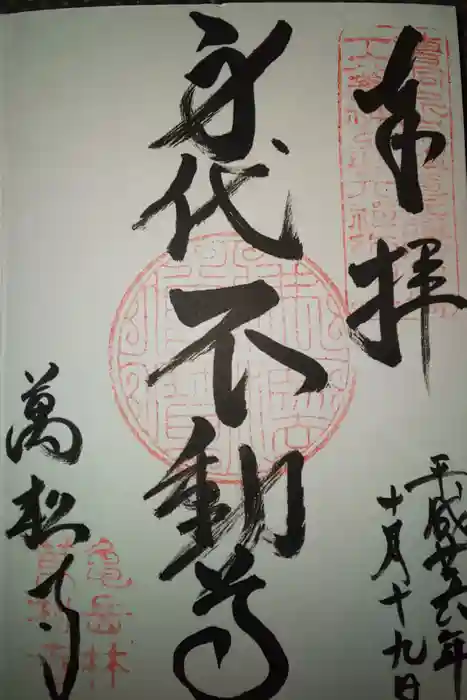 奉拝
平成廿六年
十月十九日
身代不動尊
萬松寺
亀岳林
萬松寺